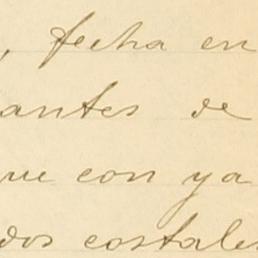 , fecha en
antes de
que con ya
dos costales